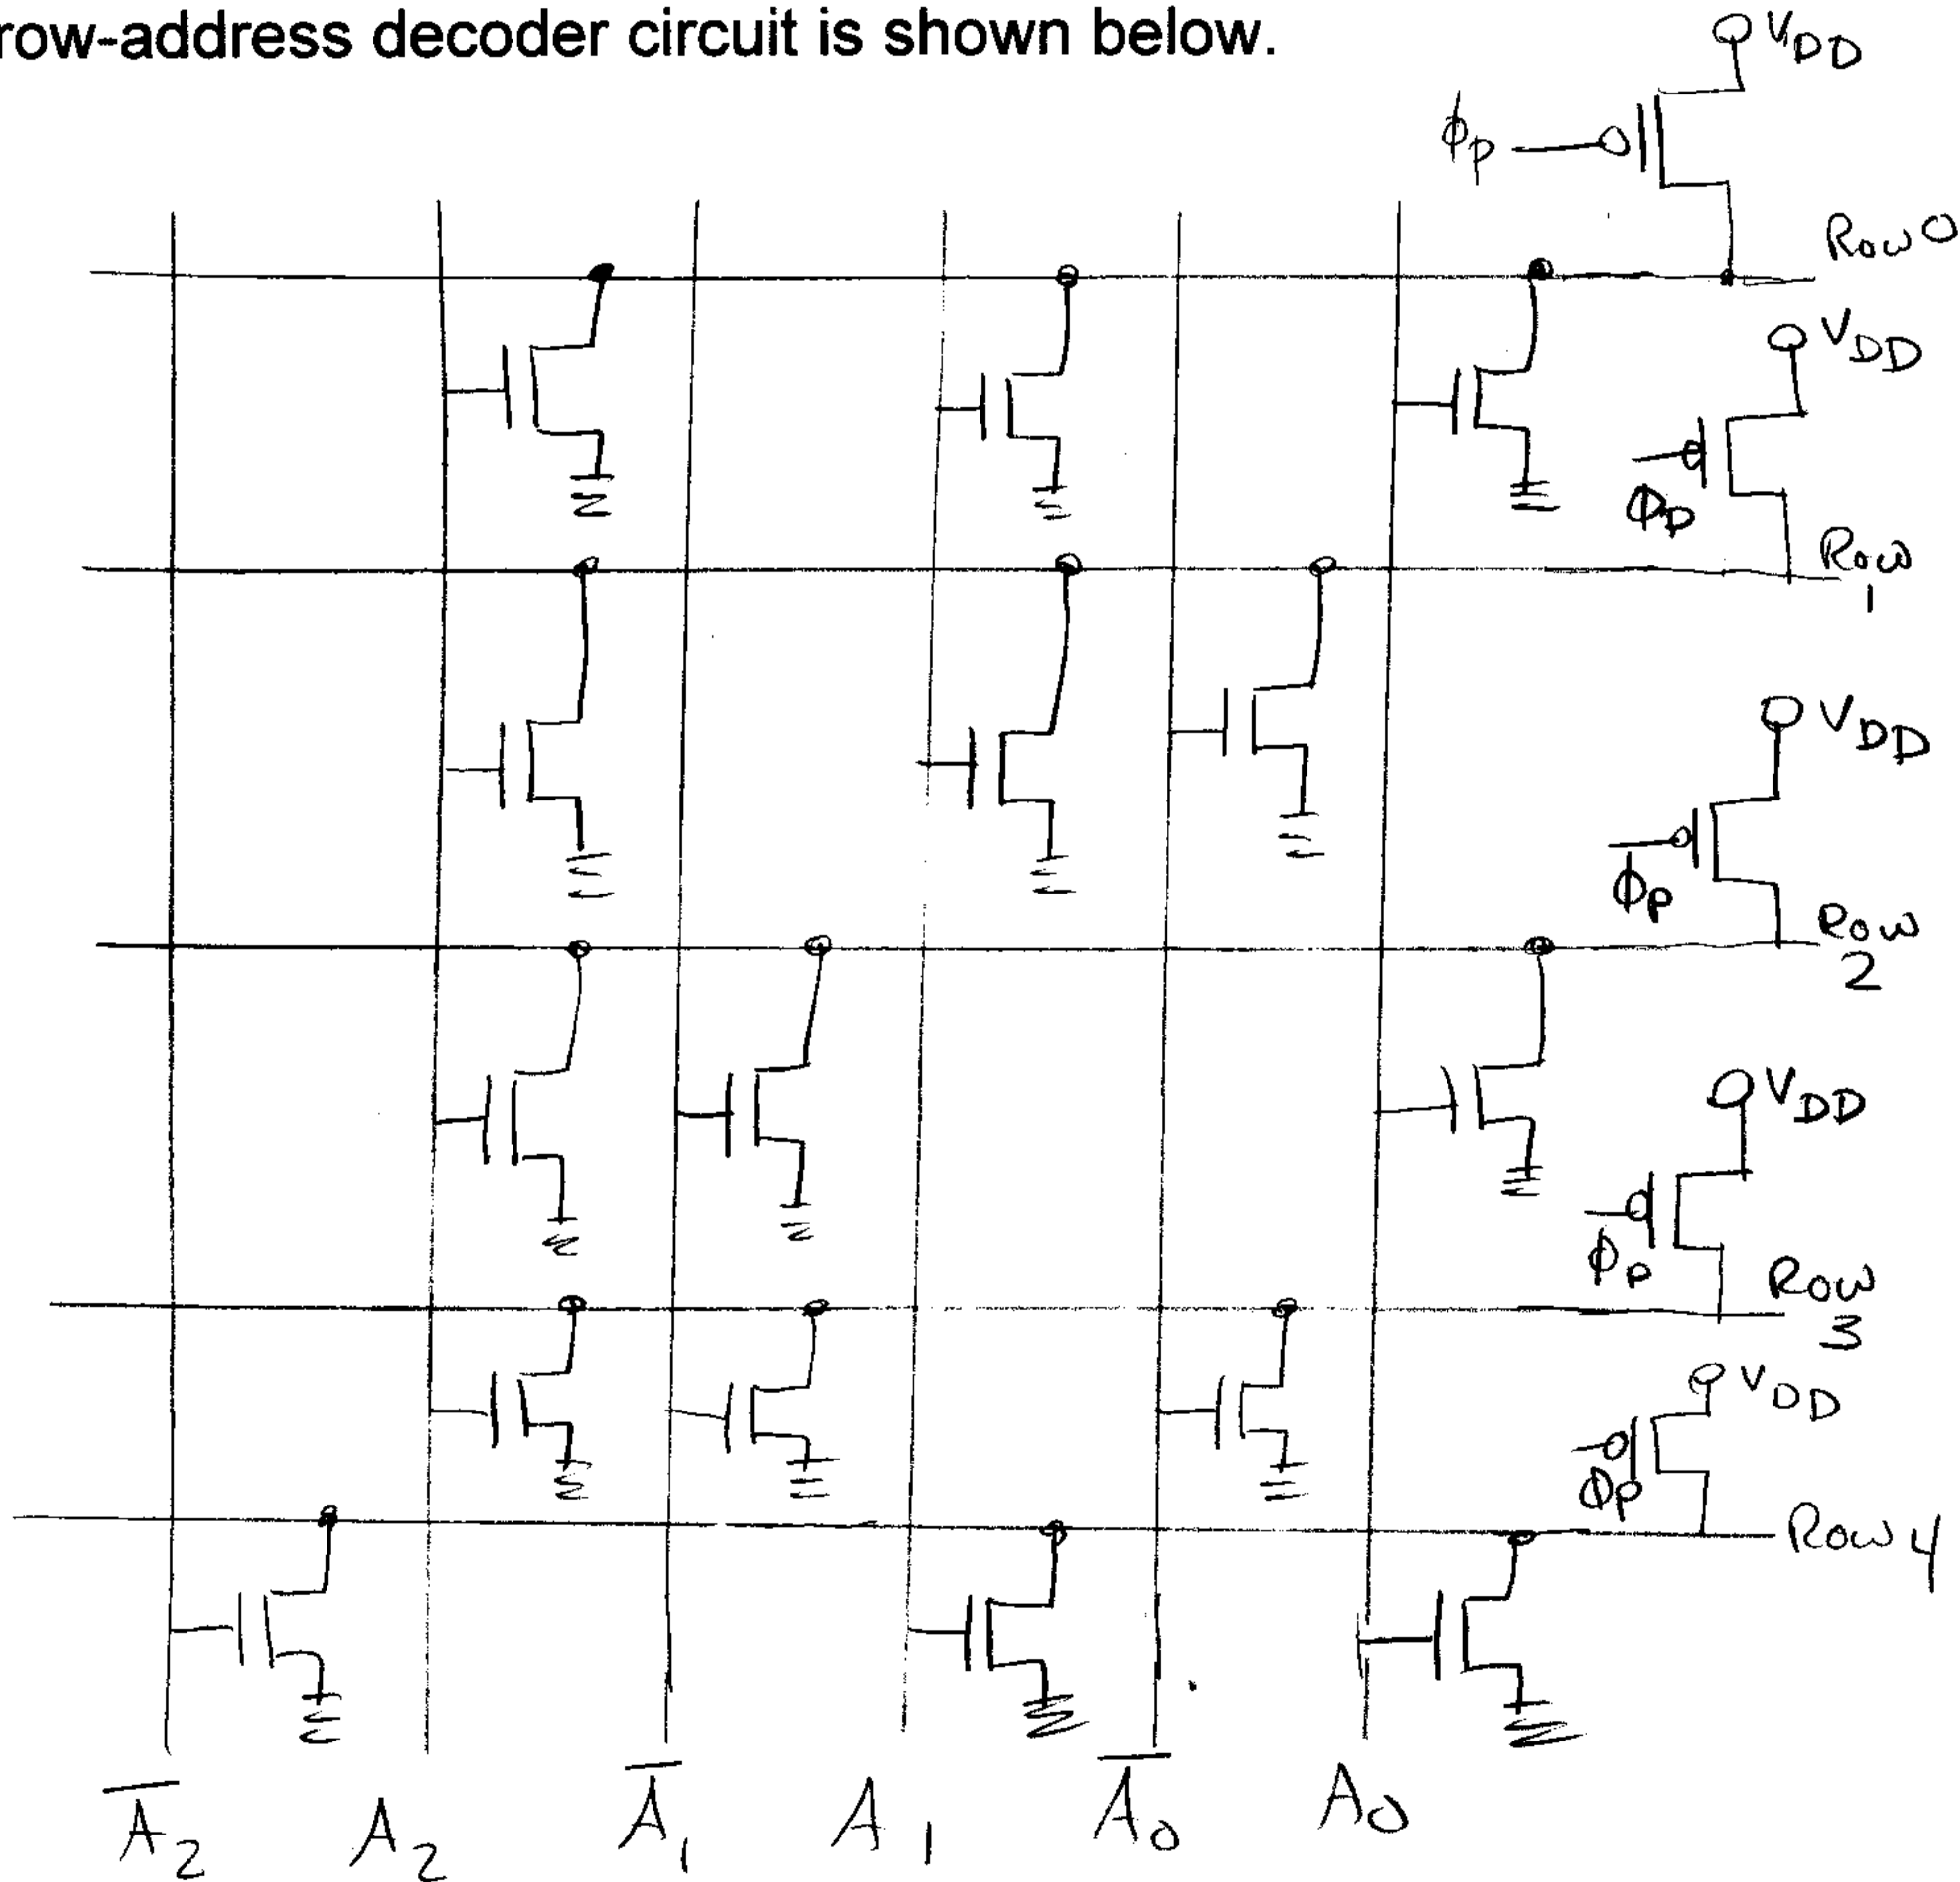 row-address decoder circuit is shown below.
V_DD
ϕ_P
Row 0
V_DD
ϕ_P
Row 1
V_DD
ϕ_P
Row 2
V_DD
ϕ_P
Row 3
V_DD
ϕ_P
Row 4
A̅_2 A_2 A̅_1 A_1 A̅_0 A_0